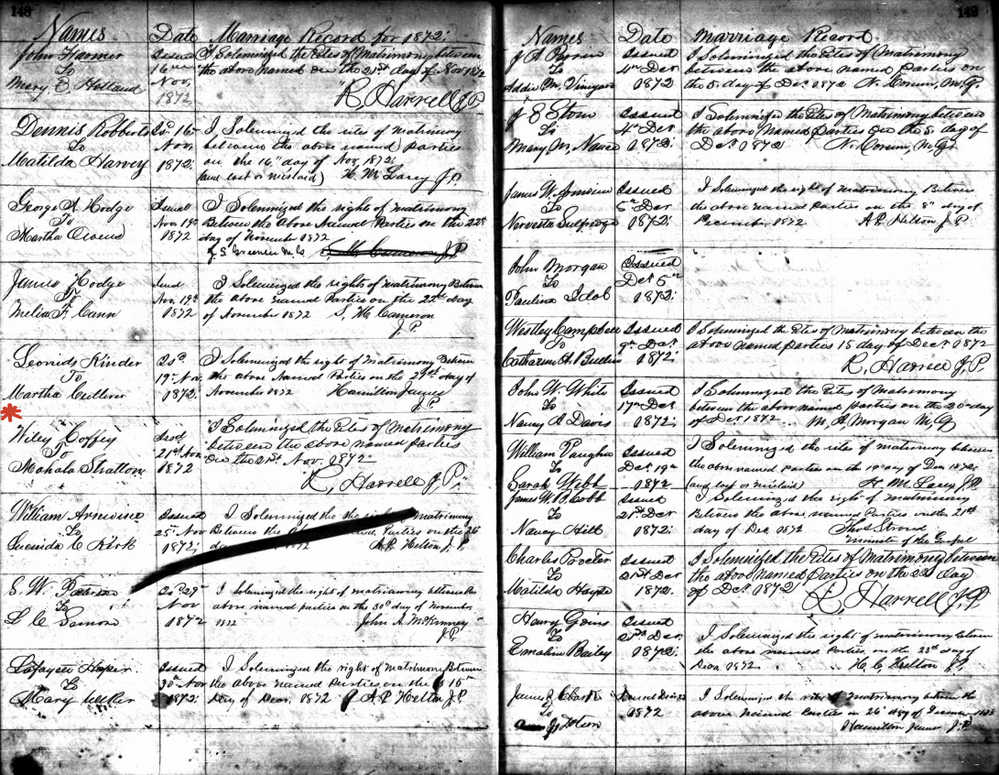 148
Names Date Marriage Record for 1872.
John Harmer Issued I Solemnized the Rites of Matrimony between
To 16th the above named on the 21st day of Nov 1872
Mary E Holland Nov. R Harrell J.P.
1872
Dennis Robberts Isd 16th I, Solemnized the rites of matrimony
To Nov. between the above named parties
Matilda Harvey 1872 on the 16th day of Nov. 1872.
(and lost or mislaid) H. M. Lacey J.P.
George A Hodge Issued I Solemnized the rights of matrimony
To Nov. 19th Between the Above Named Parties on the 22d
Martha 1872 day of November 1872
M.G. Cameron J.P.
James Hodge Nov. 19th I Solemnized the rights of matrimony Between
To 1872 the above named Parties on the 22nd day
F. Cann of November 1872 S. H. Cameron
J.P.
Leonids Kinder Isd I Solemnized the right of Matrimony Between
To 19th Nov. the above Named Parties on the day of
Martha 1872. November 1872 Hamilton
J.P.
Wiley Coffey Issd I Solemnized the Rites of Matrimony
To 21st Nov. between the above named parties
Mahala Shatton 1872 on the Nov. 1872
R. Harrell J.P.
William Arnwine Isd I Solemnized the the rights of Matrimony
To 25th Nov. Between the Parties on the
Lucinda C Kirk 1872, 1872 A.P. Helton J.P.
E. W. Isd 29 I Solemnized the right of matrimony between the
To Nov above named parties on the 30th day of November
L C 1872 1872 John A McKinney
J.P.
Lafayett Issued I Solemnized the right of matrimony Between
To 30th Nov the above named Parties on the
Mary 1872 day of 1872 A.P. Helton J.P.
149
Names Date Marriage Record.
J. A. Issued I Solemnized the Rites of Matrimony
To 4th Dec between the above named Parties on
Addie M. Vineyard 1872 the 5. day of Dec. 1872 N. Corum, M.G.
J E Storm Issued I Solemnized the Rites of Matrimony between
To 4th Dec the above Named Parties on the 5. day of
Mary M. Nance 1872. Dec. 1872 N. Corum, M.G.
James W. Issued I Solemnized the right of Matrimony Between
To 5th Dec the above named Parties on the 8th day of
1872. December 1872 A.P. Helton J.P.
John Morgan Issued
To Dec 5th
Paulina Idol 1872.
Westley Campbell Issued I Solemnized the Rites of Matrimony between the
To 9th Dec. above named parties 15 day of Dec. 1872
Catharine H. 1872. R. Harrell J.P.
John W. White Issued I Solemnized the Rites of Matrimony
To 17th Dec between the above named parties on the 20th day
Nancy A Davis 1872. of Dec. 1872 M. A. Morgan M.G.
William Vaughn Issued I Solemnized the rites of matrimony between
To Dec. 19th the above named parties on the 19th day of Dec 1872.
Sarah Webb 1872 (and lost or mislaid) H M. Lacey J.P.
James W. Issued I Solemnized the right of matrimony
To 21st Dec Between the above named Parties on the 21st
Nancy Hill 1872. day of Dec 1872 Thos Stroud
Minister of the Gospel
Charles Procter Issued I Solemnized the Rites of Matrimony between
To 21st Dec the above named Parties on the 22d day
Matilda 1872. of Dec. 1872 R. Harrell J.P.
Henry Goins Issued I Solemnized the right of matrimony between
To 21st Dec. the above named Parties on the 22d day of
Emaline Bailey 1872. 1872 Helton J.P.
James Clark Issued I Solemnized the rites of matrimony between the
To 1872 above named Parties on 26th day of
Hamilton J.P.